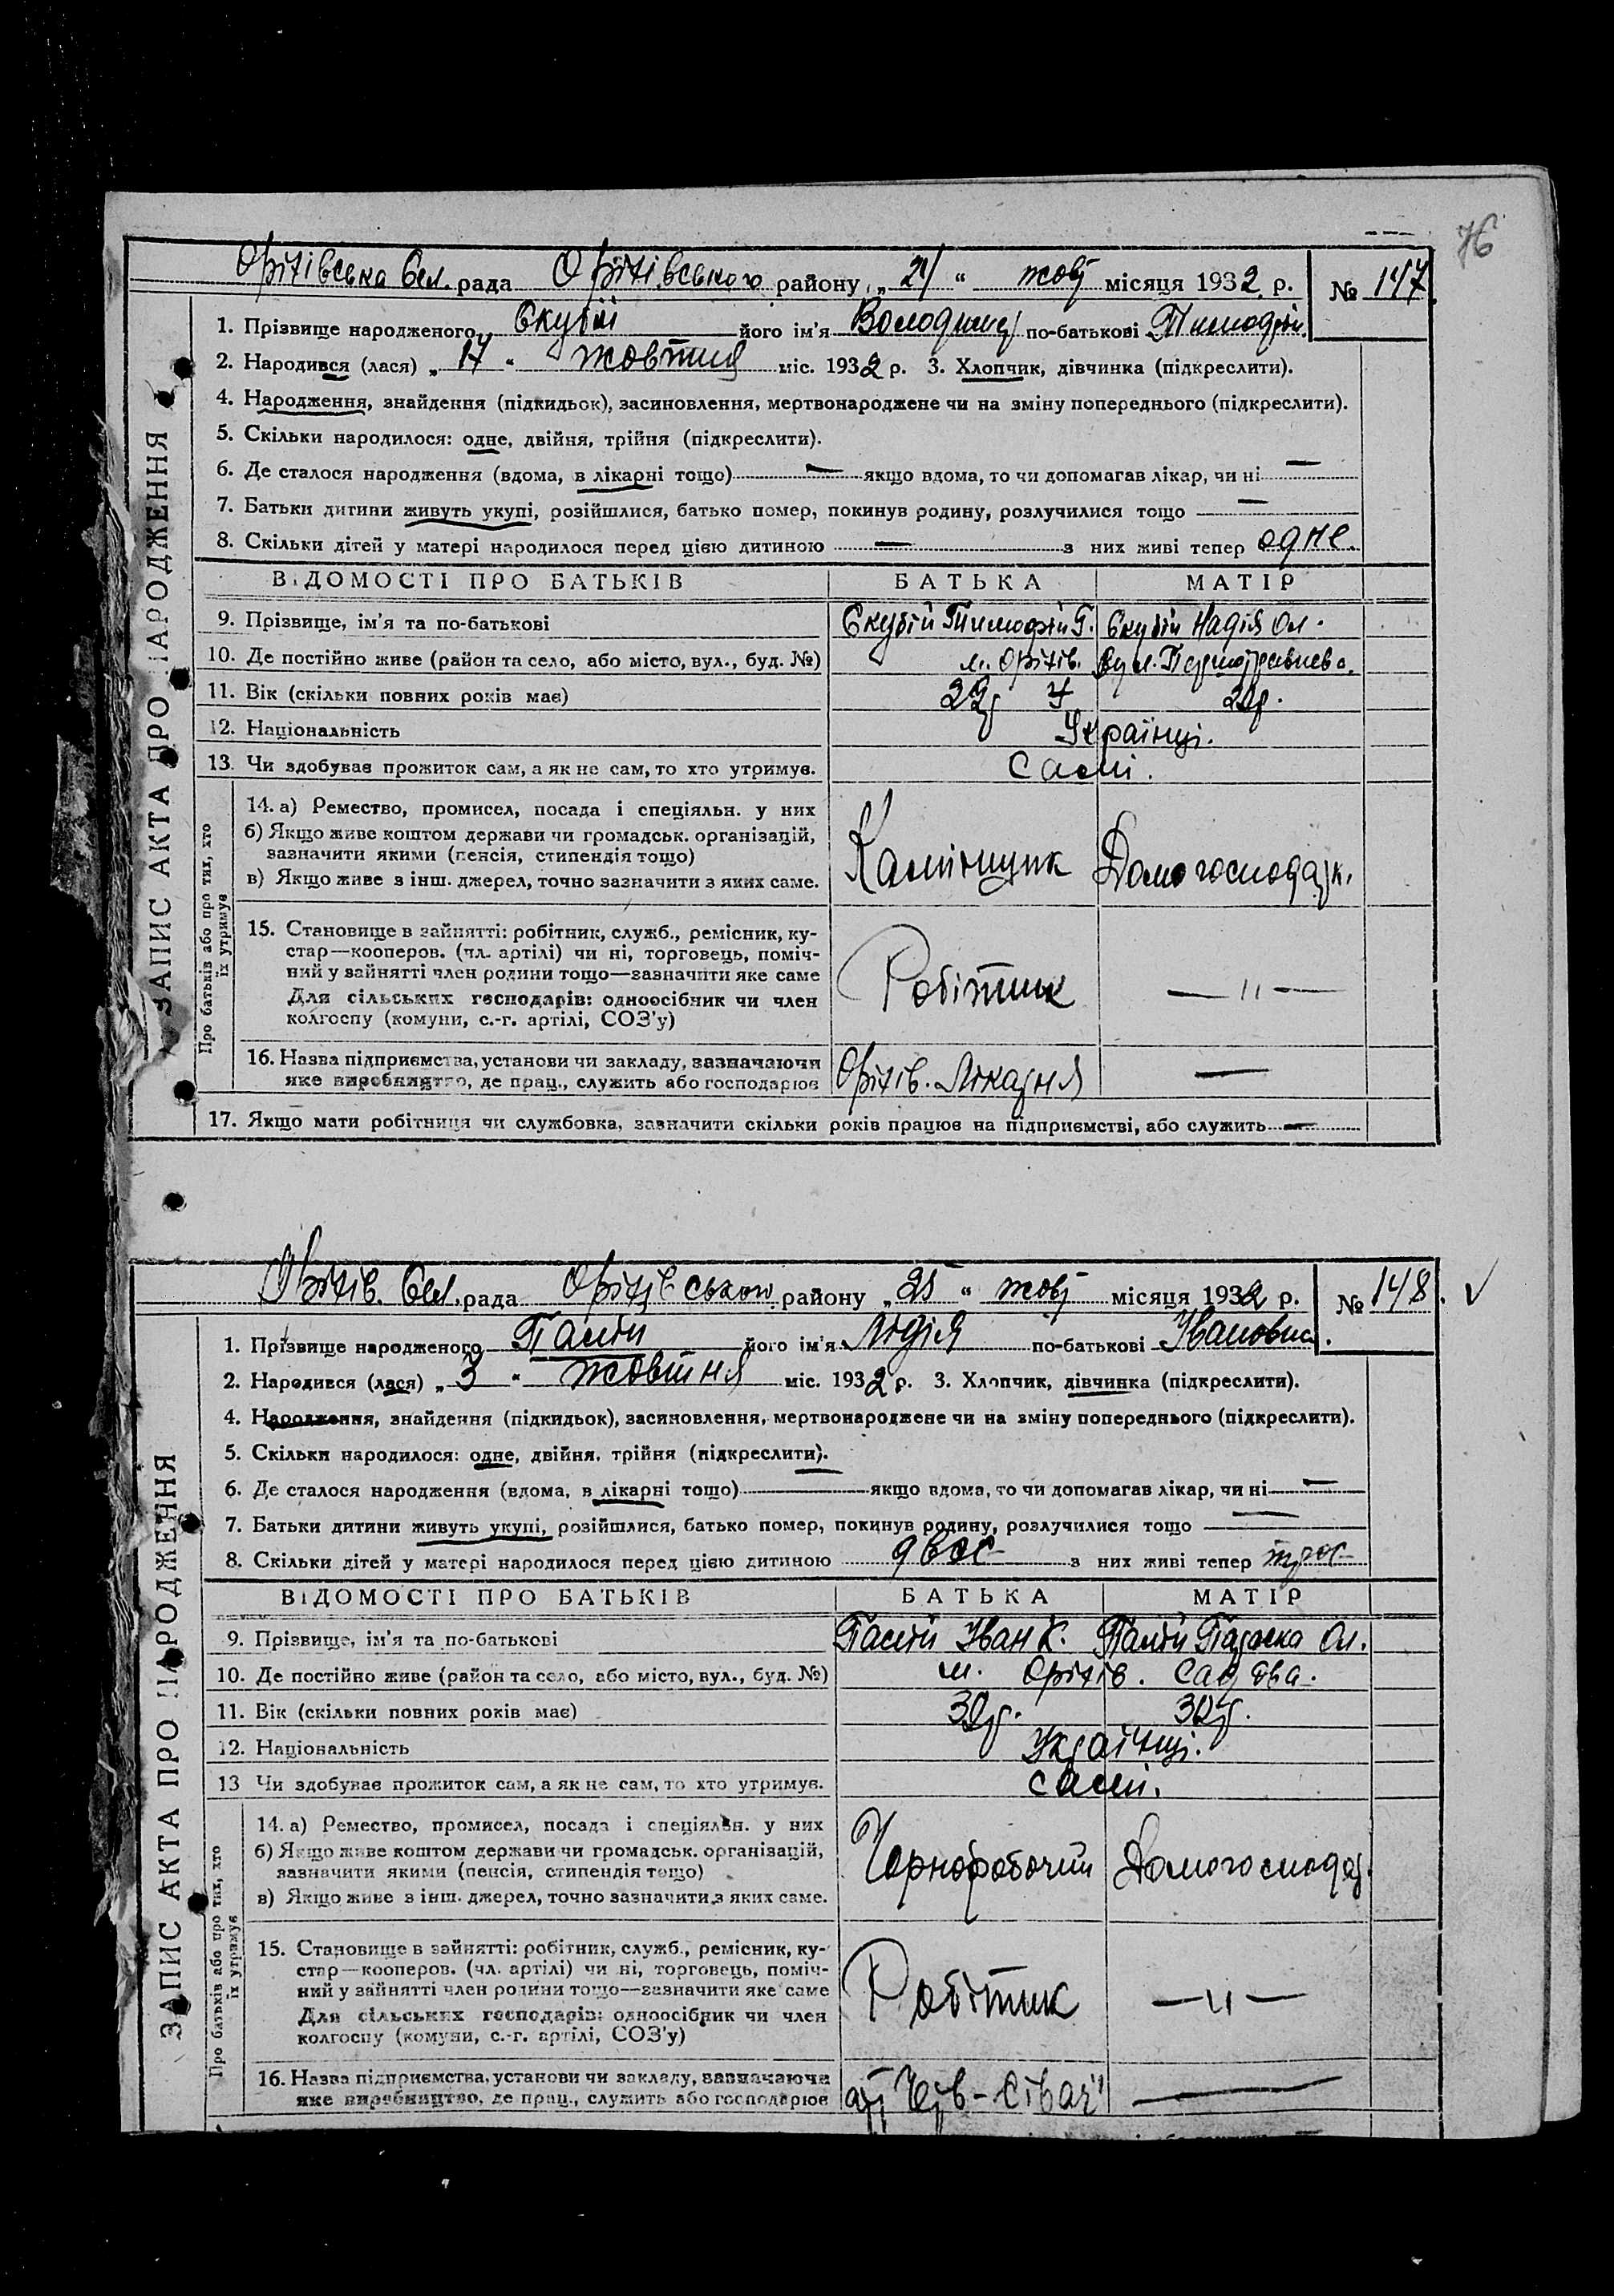 76
Оріхівська Сел. рада Оріхівського району „21“ жовт місяця 1932 р. № 147
1. Прізвище народженого Єкубій його ім'я Володимир по-батькові Тимофій.
2. Народився (лася) „17“ жовтня міс. 1932 р. 3. Хлопчик, дівчинка (підкреслити).
4. Народження, знайдення (підкидьок), засиновлення, мертвонароджене чи на зміну попереднього (підкреслити).
5. Скільки народилося: одне, двійня, трійня (підкреслити).
6. Де сталося народження (вдома, в лікарні тощо) — якщо вдома, то чи допомагав лікар, чи ні —
7. Батьки дитини живуть укупі, розійшлися, батько помер, покинув родину, розлучилися тощо —
8. Скільки дітей у матері народилося перед цією дитиною — з них живі тепер одне.
ВІДОМОСТІ ПРО БАТЬКІВ БАТЬКА МАТІР
9. Прізвище, ім'я та по-батькові Єкубій Тимофій Г. Єкубій Надія Ол.
10. Де постійно живе (район та село, або місто, вул., буд. №) м. Оріхів. вул. Першотравнева.
11. Вік (скільки повних років має) 22р 22р.
12. Національність Українці.
13. Чи здобуває прожиток сам, а як не сам, то хто утримує. Самі.
14. а) Ремество, промисел, посада і спеціяльн. у них
б) Якщо живе коштом держави чи громадськ. організацій,
зазначити якими (пенсія, стипендія тощо)
в) Якщо живе з інш. джерел, точно зазначити з яких саме.
Камінщик Домогосподарк.
15. Становище в зайнятті: робітник, служб., ремісник, ку-
стар—кооперов. (чл. артілі) чи ні, торговець, поміч-
ний у зайнятті член родини тощо—зазначити яке саме
Для сільських господарів: одноосібник чи член
колгоспу (комуни, с.-г. артілі, СОЗ'у)
Робітник — " —
16. Назва підприємства, установи чи закладу, зазначаючи
яке виробництво, де прац., служить або господарює Оріхів. Лікарня —
17. Якщо мати робітниця чи службовка, зазначити скільки років працює на підприємстві, або служить —
ЗАПИС АКТА ПРО НАРОДЖЕННЯ
Про батьків або про тих, хто
їх утримує
Оріхів. Сел. рада Оріхівського району „25“ жовт місяця 1932 р. № 148.
1. Прізвище народженого Палій його ім'я Лідія по-батькові Івановна.
2. Народився (лася) „3“ жовтня міс. 1932 р. 3. Хлопчик, дівчинка (підкреслити).
4. Народження, знайдення (підкидьок), засиновлення, мертвонароджене чи на зміну попереднього (підкреслити).
5. Скільки народилося: одне, двійня, трійня (підкреслити).
6. Де сталося народження (вдома, в лікарні тощо) якщо вдома, то чи допомагав лікар, чи ні —
7. Батьки дитини живуть укупі, розійшлися, батько помер, покинув родину, розлучилися тощо —
8. Скільки дітей у матері народилося перед цією дитиною двоє з них живі тепер троє
ВІДОМОСТІ ПРО БАТЬКІВ БАТЬКА МАТІР
9. Прізвище, ім'я та по-батькові Палій Іван К. Палій Параска Ол.
10. Де постійно живе (район та село, або місто, вул., буд. №) м. Оріхів.
11. Вік (скільки повних років має) 32р. 32р.
12. Національність Українці.
13 Чи здобуває прожиток сам, а як не сам, то хто утримує. самі.
14. а) Ремество, промисел, посада і спеціяльн. у них
б) Якщо живе коштом держави чи громадськ. організацій,
зазначити якими (пенсія, стипендія тощо)
в) Якщо живе з інш. джерел, точно зазначити з яких саме.
Чорноробочий Домогосподар.
15. Становище в зайнятті: робітник, служб., ремісник, ку-
стар—кооперов. (чл. артілі) чи ні, торговець, поміч-
ний у зайнятті член родини тощо—зазначити яке саме
Для сільських господарів: одноосібник чи член
колгоспу (комуни, с.-г. артілі, СОЗ'у)
Робітник — " —
16. Назва підприємства, установи чи закладу, зазначаючи
яке виробництво, де прац., служить або господарює арт Черв-Сівач" —
ЗАПИС АКТА ПРО НАРОДЖЕННЯ
Про батьків або про тих, хто
їх утримує